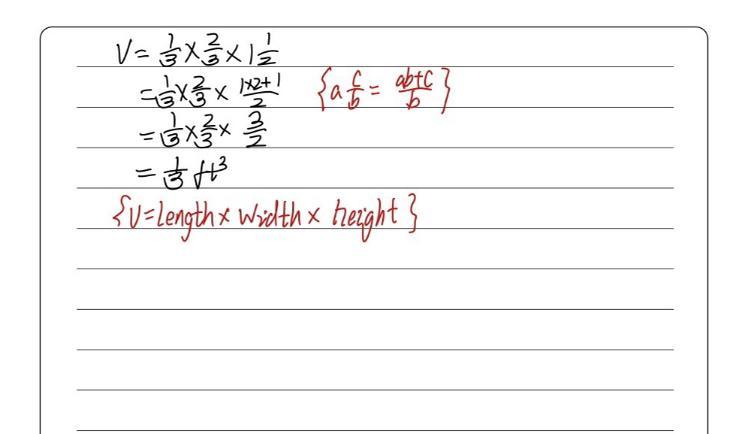 V = 1/3 × 2/3 × 1 1/2
= 1/3 × 2/3 × (1×2+1)/2 {a c/b = (ab+c)/b}
= 1/3 × 2/3 × 3/2
= 1/3 ft³
{V = length × width × height}